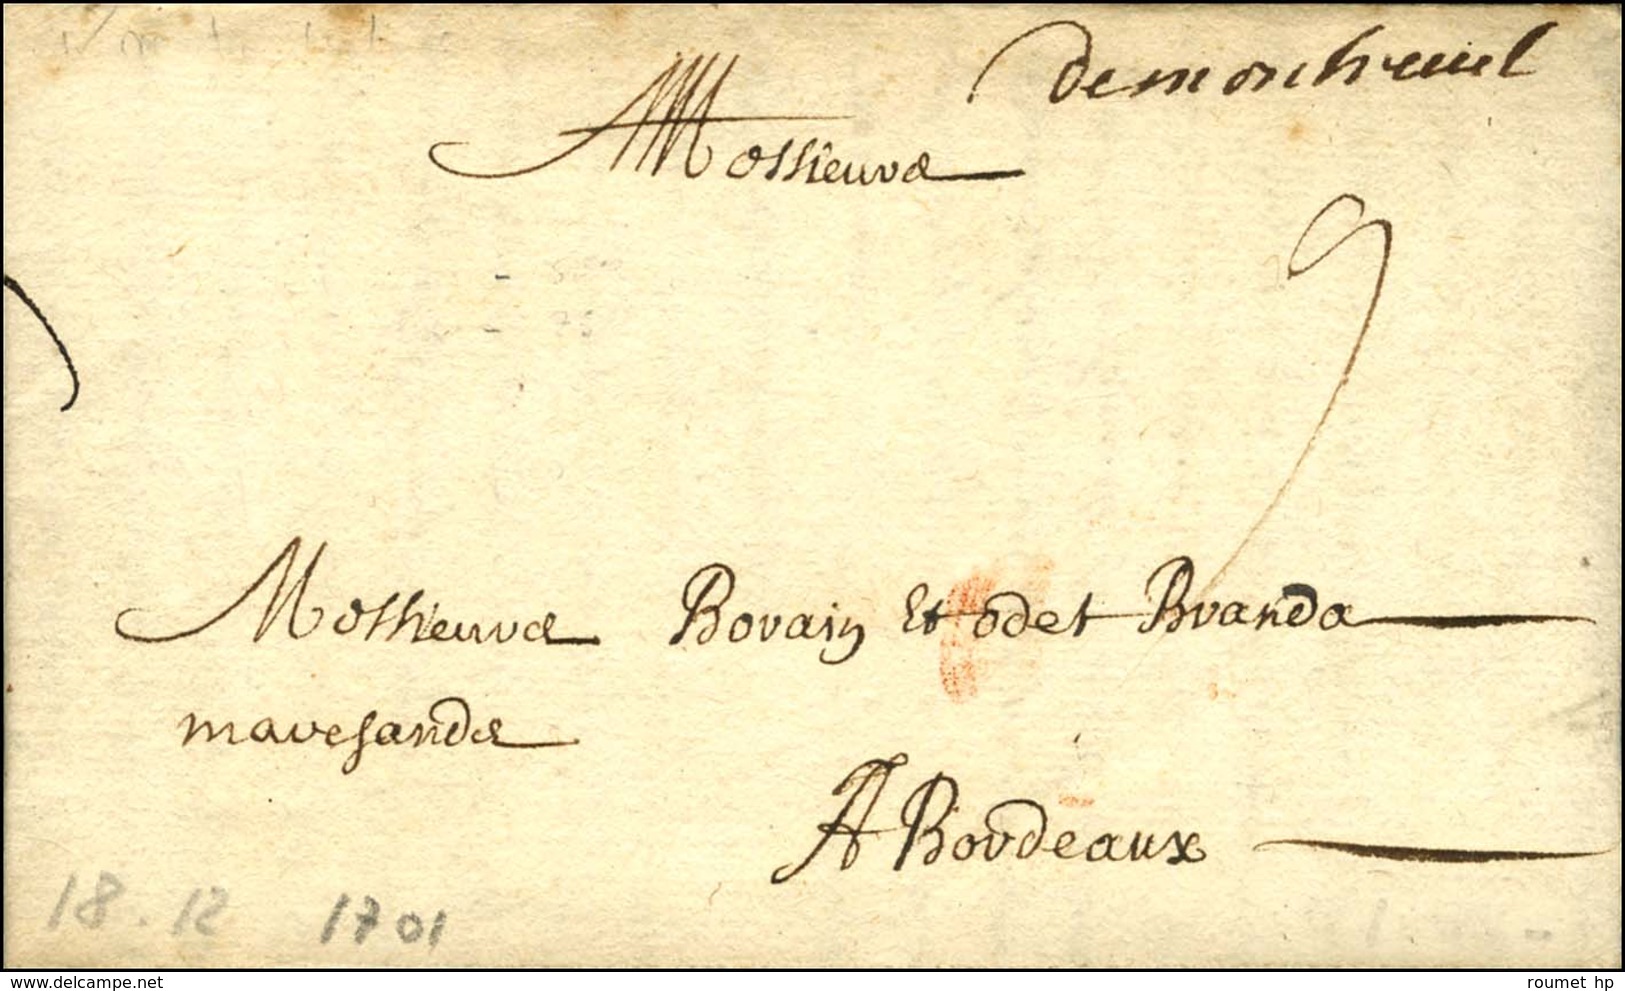 demontreuil
Mossieurs
9
Mossieurs Borain Et odet Branda
maresands
A Bordeaux
18.12 1701
www.delcampe.net
roumet hp